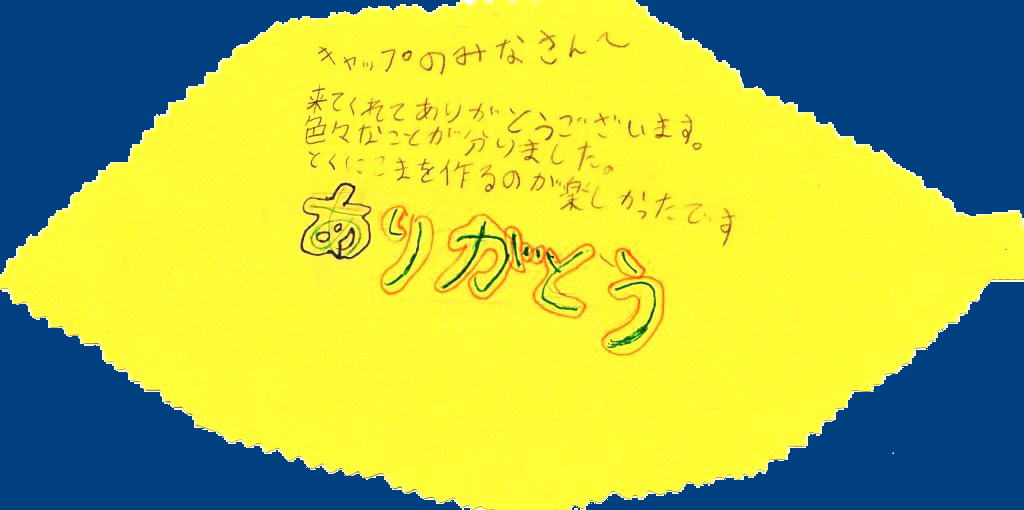 キャップのみなさんへ
来てくれてありがとうございます。
色々なことが分りました。
とくにこまを作るのが楽しかったです
ありがとう